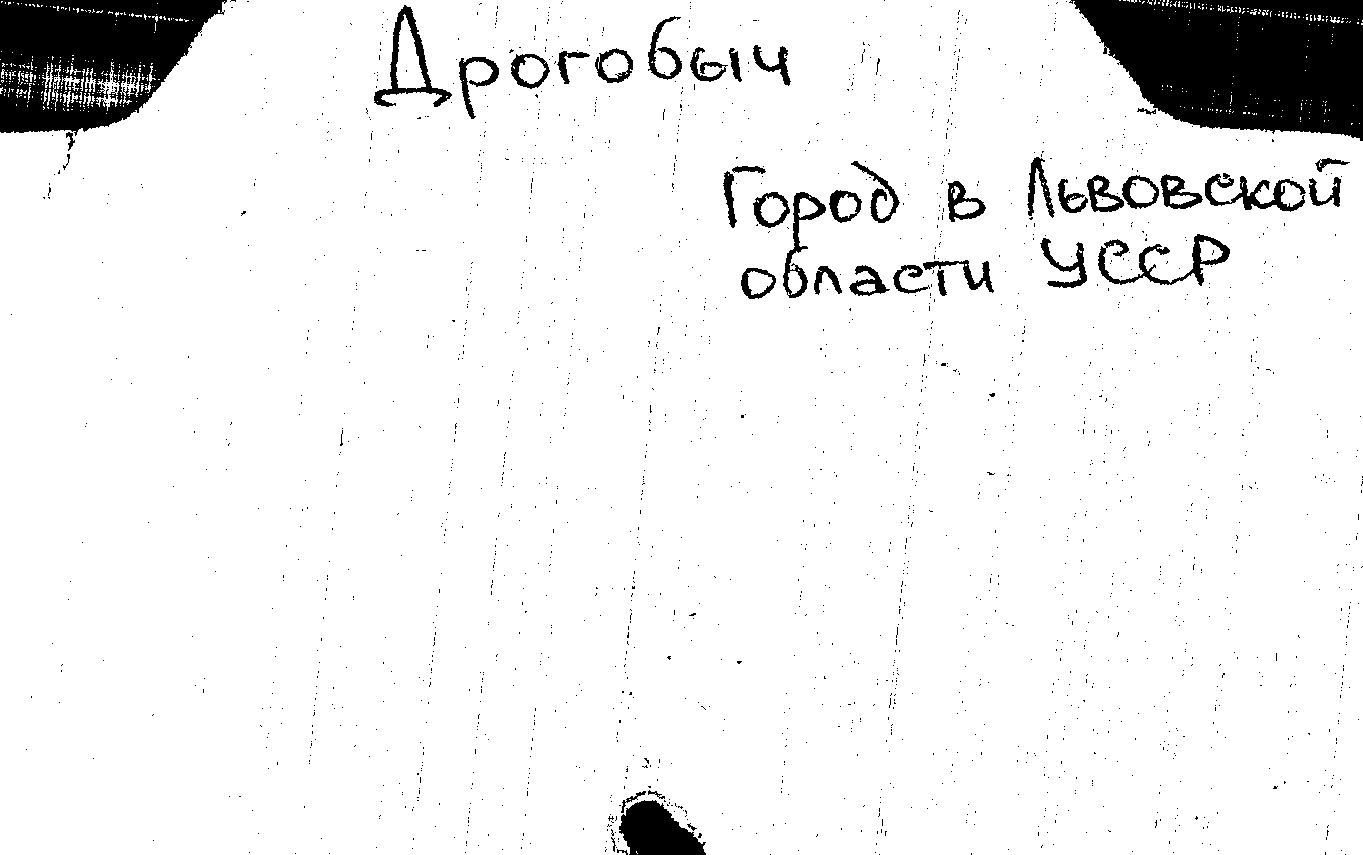 Дрогобыч
Город в Львовской
области УССР